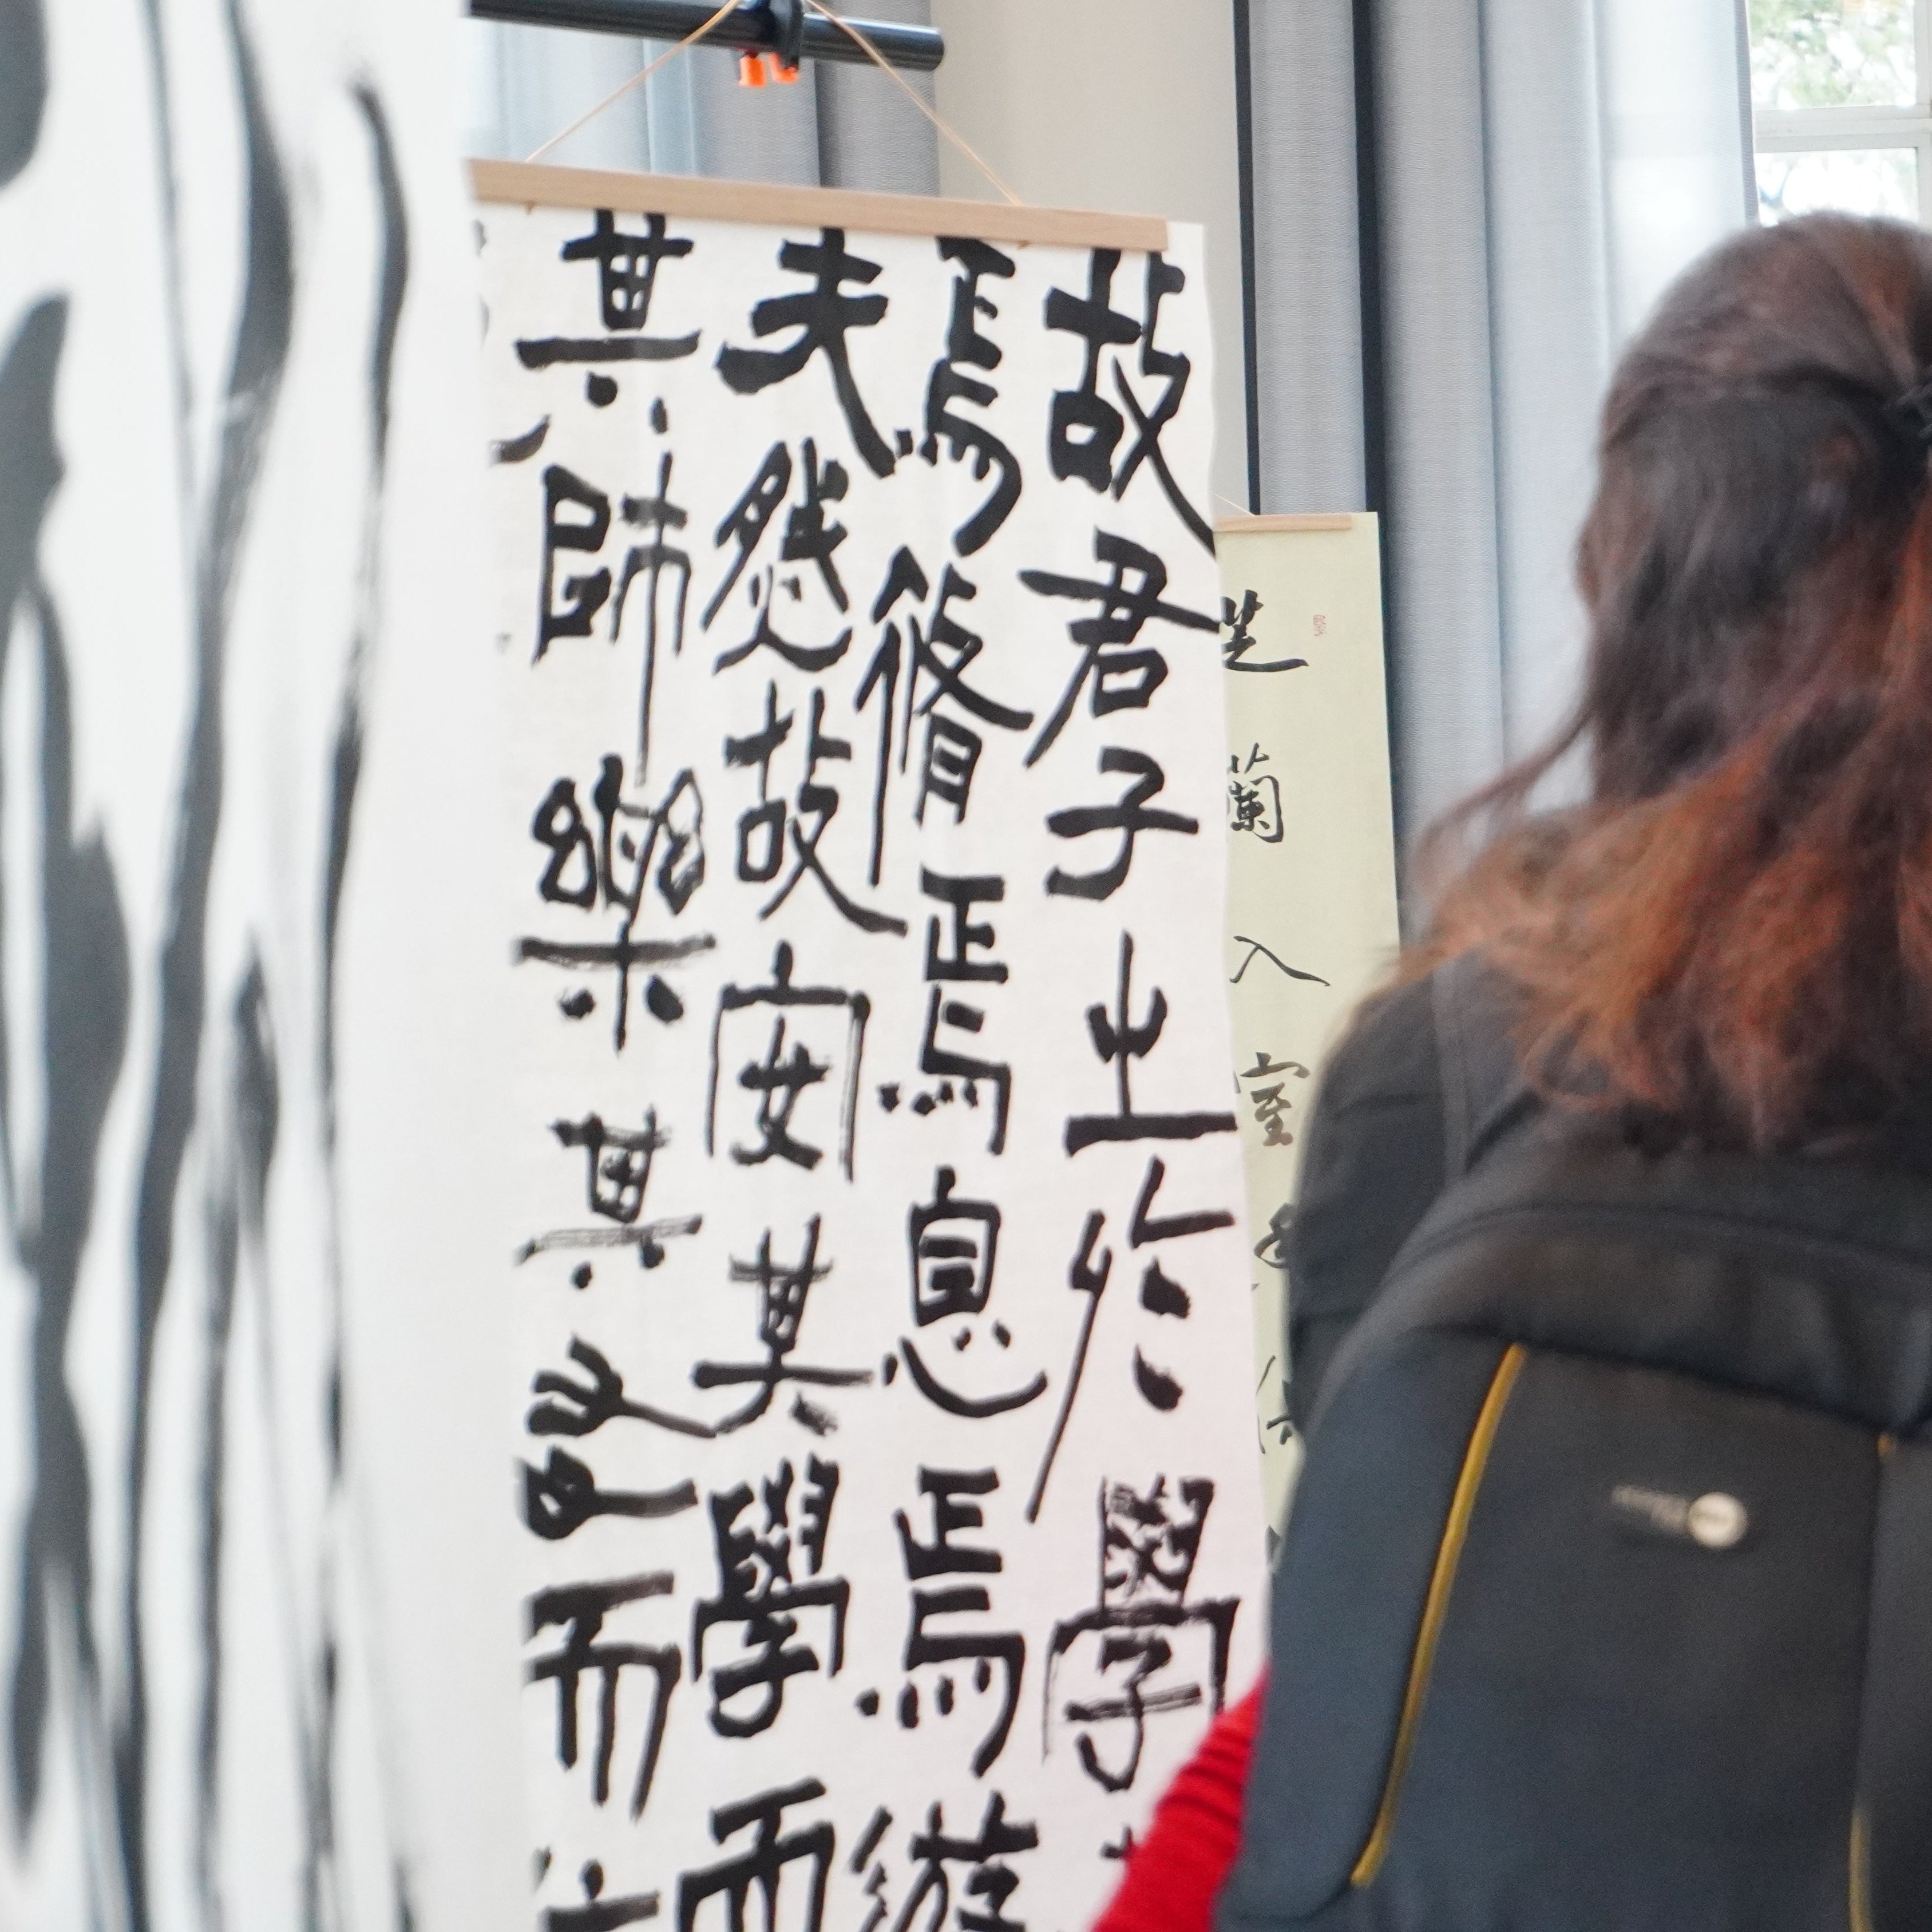 芝蘭入室
故君子之於學
焉脩焉息焉遊
夫然故安其學而
其師樂其友而